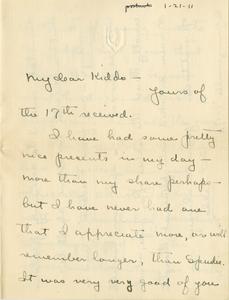 postmark 1-21-11
My dear Kiddo —
Yours of
the 17th received.
I have had some pretty
nice presents in my day —
more than my share perhaps —
but I have never had one
that I appreciate more, or will
remember longer, than
It was very very good of you